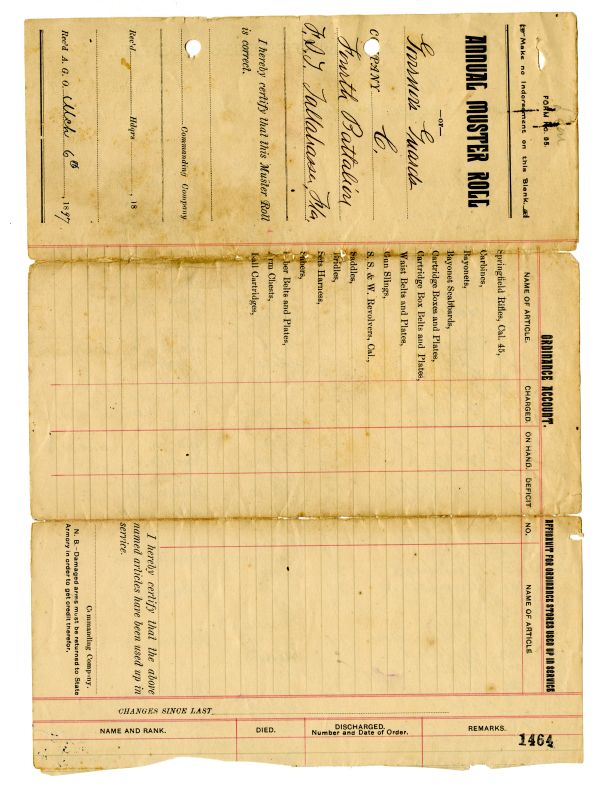 FORM No. 95.
Make no Indorsement on this Blank
ANNUAL MUSTER ROLL
—OF—
Governor's Guards
COMPANY C.
Fourth Battalion
F.S.T. Tallahassee, Fla
I hereby certify that this Muster Roll
is correct.
Commanding Company
Hdqrs
Rec'd , 18
Rec'd A. G. O. Mch 6th , 1897
ORDINANCE ACCOUNT.
NAME OF ARTICLE. CHARGED. ON HAND. DEFICIT
Springfield Rifles, Cal. 45,
Carbines,
Bayonets,
Bayonet Scabbards,
Cartridge Boxes and Plates,
Cartridge Box Belts and Plates,
Waist Belts and Plates,
Gun Slings,
S. S. & W. Revolvers, Cal.,
Saddles,
Bridles,
Sets Harness,
Sabers,
ber Belts and Plates,
rm Chests,
all Cartridges,
AFFIDAVIT FOR ORDINANCE STORES USED UP IN SERVICE
NO. NAME OF ARTICLE
I hereby certify that the above
named articles have been used up in
service.
Commanding Company.
N. B.—Damaged arms must be returned to State
Armory in order to get credit therefor.
CHANGES SINCE LAST
NAME AND RANK. DIED. DISCHARGED. REMARKS.
Number and Date of Order.
1464